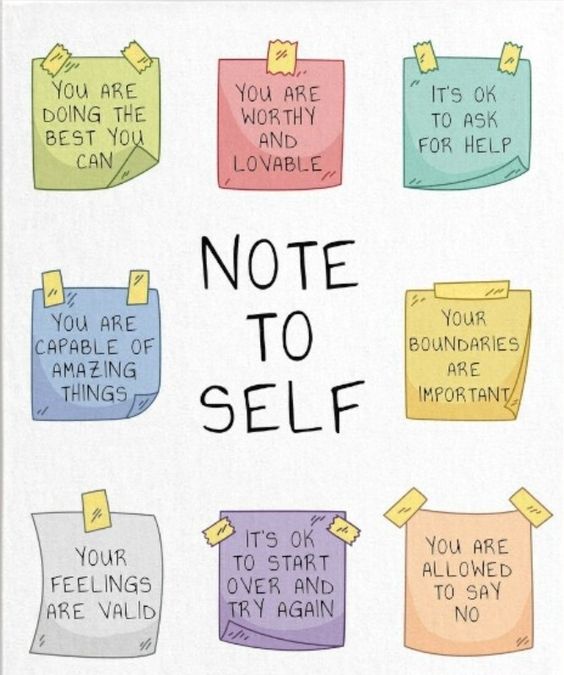 YOU ARE
DOING THE
BEST YOU
CAN
YOU ARE
WORTHY
AND
LOVABLE
IT'S OK
TO ASK
FOR HELP
NOTE
TO
SELF
YOU ARE
CAPABLE OF
AMAZING
THINGS
YOUR
BOUNDARIES
ARE
IMPORTANT
YOUR
FEELINGS
ARE VALID
IT'S OK
TO START
OVER AND
TRY AGAIN
YOU ARE
ALLOWED
TO SAY
NO